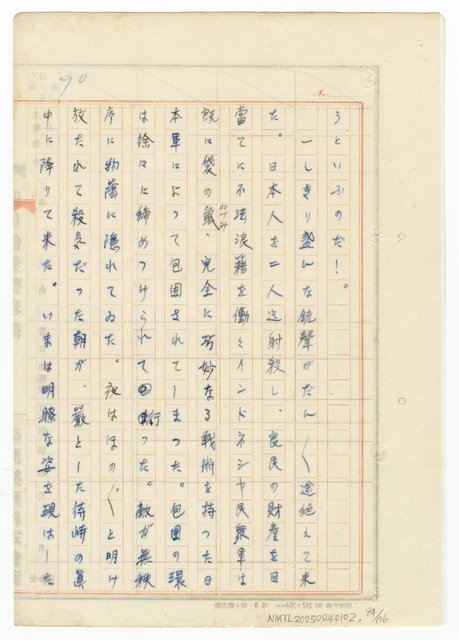 90
No.
うといふのだ！。
一しきり盛んな銃聲がだん〳〵途絶えて来
た。日本人を二人迄射殺し、良民の財産を目
當てに不法浪藉を働くインドネシヤ民衆軍は
既に袋の鼠、完全に巧妙なる戦術を持つた日
本軍によつて包囲されてしまつた。包囲の環
は徐々に締めつけられて行つた。敵が無秩
序に物蔭に隠れてゐた。夜はほの〴〵と明け
放たれて殺気だつた朝が、嚴とした待峙の眞
中に降りて来た。いまは明瞭な姿を現はした
NMTL20050040102, 94/116